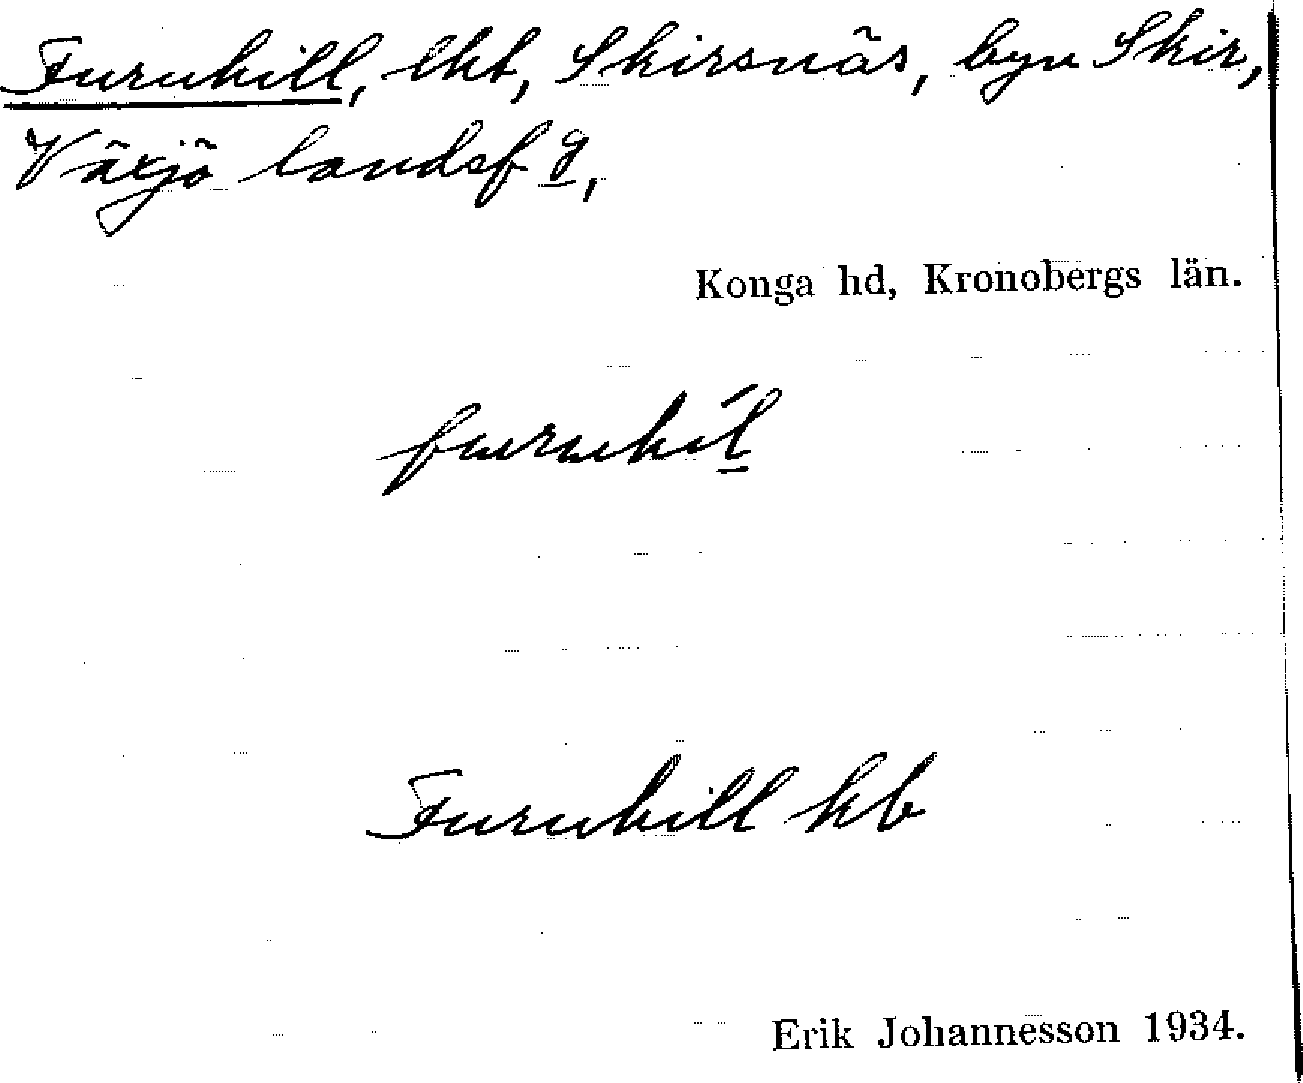 Furuhill, lht, Skirsnäs, byn Skir,
Växjö landsfg,
Konga hd, Kronobergs län.
furuhíl
Furuhill hb
Erik Johannesson 1934.